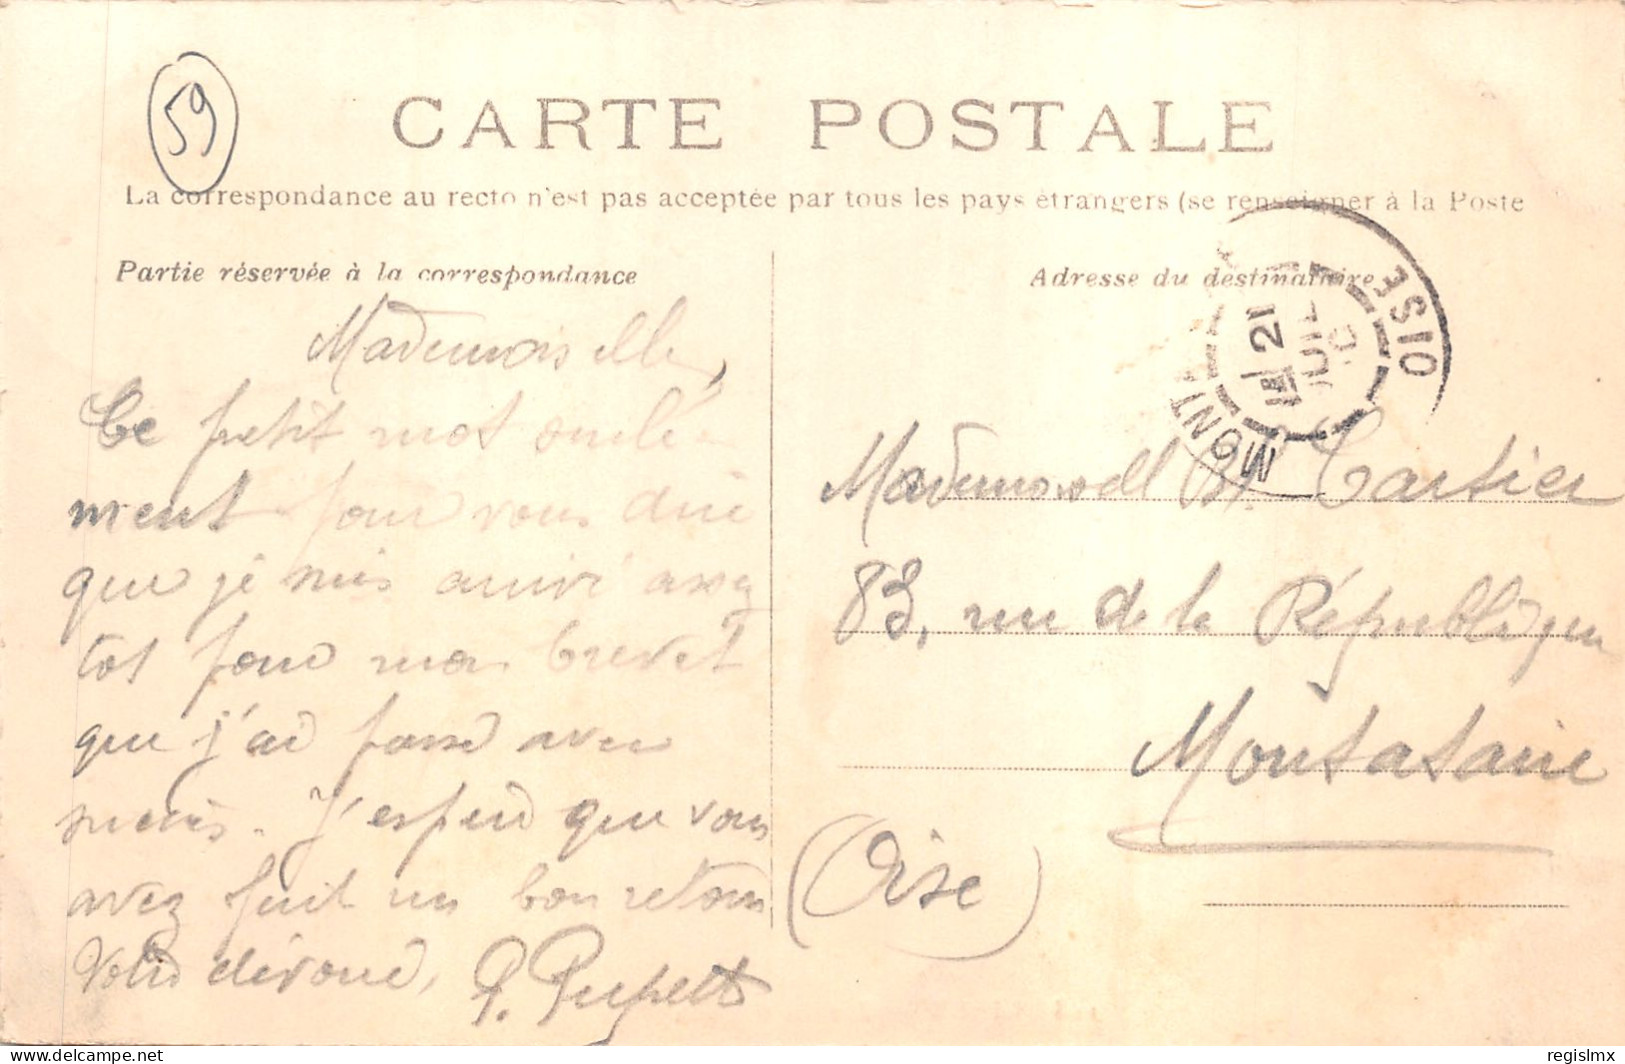 59
CARTE POSTALE
La correspondance au recto n'est pas acceptée par tous les pays étrangers (se renseigner à la Poste
Partie réservée à la correspondance
Adresse du destinataire
MONTATAIRE OISE
21
JUIL
Mademoiselle,
Ce petit mot seule-
ment pour vous dire
que je suis arrivé assez
tot pour mon brevet
que j'ai passé avec
succès. J'espère que vous
avez fait un bon retour
Votre dévoué, P.
Mademoiselle Cartier
83, rue de la République
Montataire
(Oise)
delcampe.net
regislmx